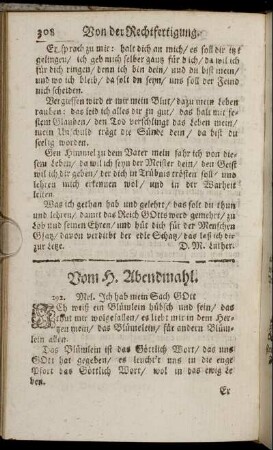 308 Von der Rechtfertigung.
Er sprach zu mir: halt dich an mich/ es soll dir itzt
gelingen/ ich geb mich selber gantz für dich/ da wil ich
für dich ringen/ denn ich bin dein/ und du bist mein/
und wo ich bleib/ da solt du seyn/ uns soll der Feind
nicht scheiden.
Vergiessen wird er mir mein Blut/ dazu mein Leben
rauben: das leid ich alles dir zu gut/ das halt mit fe-
stem Glauben/ den Tod verschlingt das Leben mein/
mein Unschuld trägt die Sünde dein/ da bist du
seelig worden.
Gen Himmel zu dem Vater mein fahr ich von die-
sem Leben/ da wil ich seyn der Meister dein/ den Geist
wil ich dir geben/ der dich in Trübnis trösten soll/ und
lehren mich erkennen wol/ und in der Warheit
leiten.
Was ich gethan hab und gelehrt/ das solt du thun
und lehren/ damit das Reich GOttes werd gemehrt/ zu
Lob und seinen Ehren/ und hüt dich für der Menschen
Gsatz/ davon verdirbt der edle Schatz/ das laß ich dir
zur Letze. D. M. Luther.
Vom H. Abendmahl.
292. Mel. Ich hab mein Sach GOtt
ICh weiß ein Blümlein hübsch und fein/ das
thut mir wolgefallen/ es liebt mir in dem Her-
tzen mein/ das Blümelein/ für andern Blüm-
lein allen.
Das Blümlein ist das Göttlich Wort/ das uns
GOtt hat gegeben/ es leucht't uns in die enge
Pfort das Göttlich Wort/ wol in das ewig Le-
ben.
Er